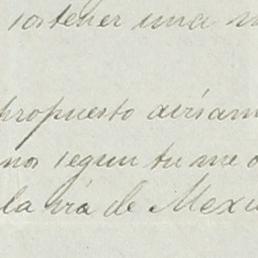 sostener una
propuesto avisam
nos segun tu me
la via de Mexi